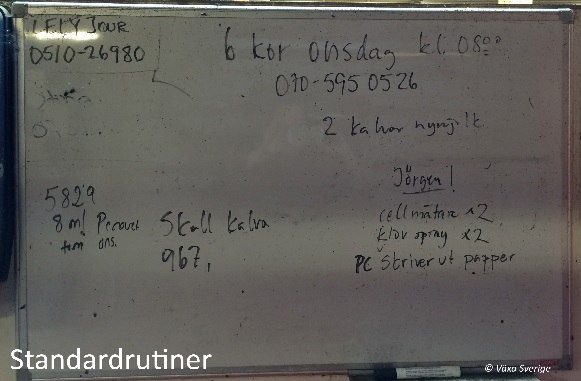 LELY JOUR
0510-26980
6 kor onsdag kl 08⁰⁰
070-595 0526
2 kalvar
5829
8 ml
tom ons.
Skall kalva
967,
Jörgen!
cellmätare x2
klöv spray x2
PC skriver ut papper
Standardrutiner
© Växa Sverige